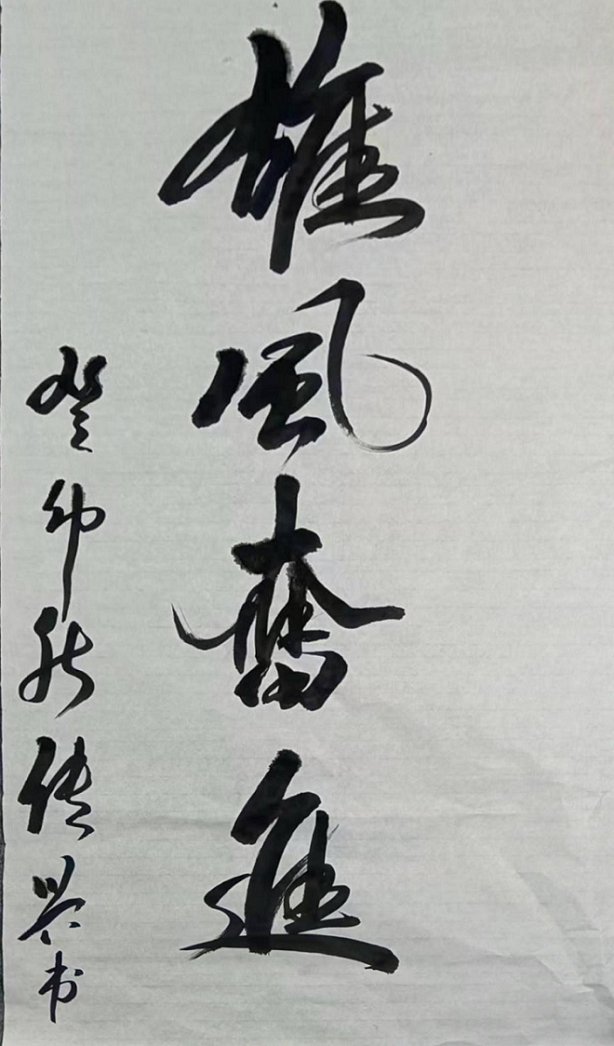 雄風奮進
癸卯秋传兴书